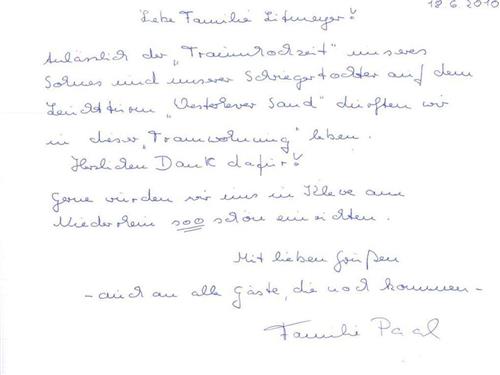 18.6.2010
Liebe Familie Litmeyer!
Anlässlich der "Traumhochzeit" unseres
Sohnes und unserer Schwiegertochter auf dem
Leuchtturm "Westerhever Sand" durften wir
in dieser "Traumwohnung" leben.
Herzlichen Dank dafür!
Gerne würden wir uns in Kleve am
Niederrhein soo schön einrichten.
Mit lieben Grüßen
- auch an alle Gäste, die noch kommen -
Familie Paal